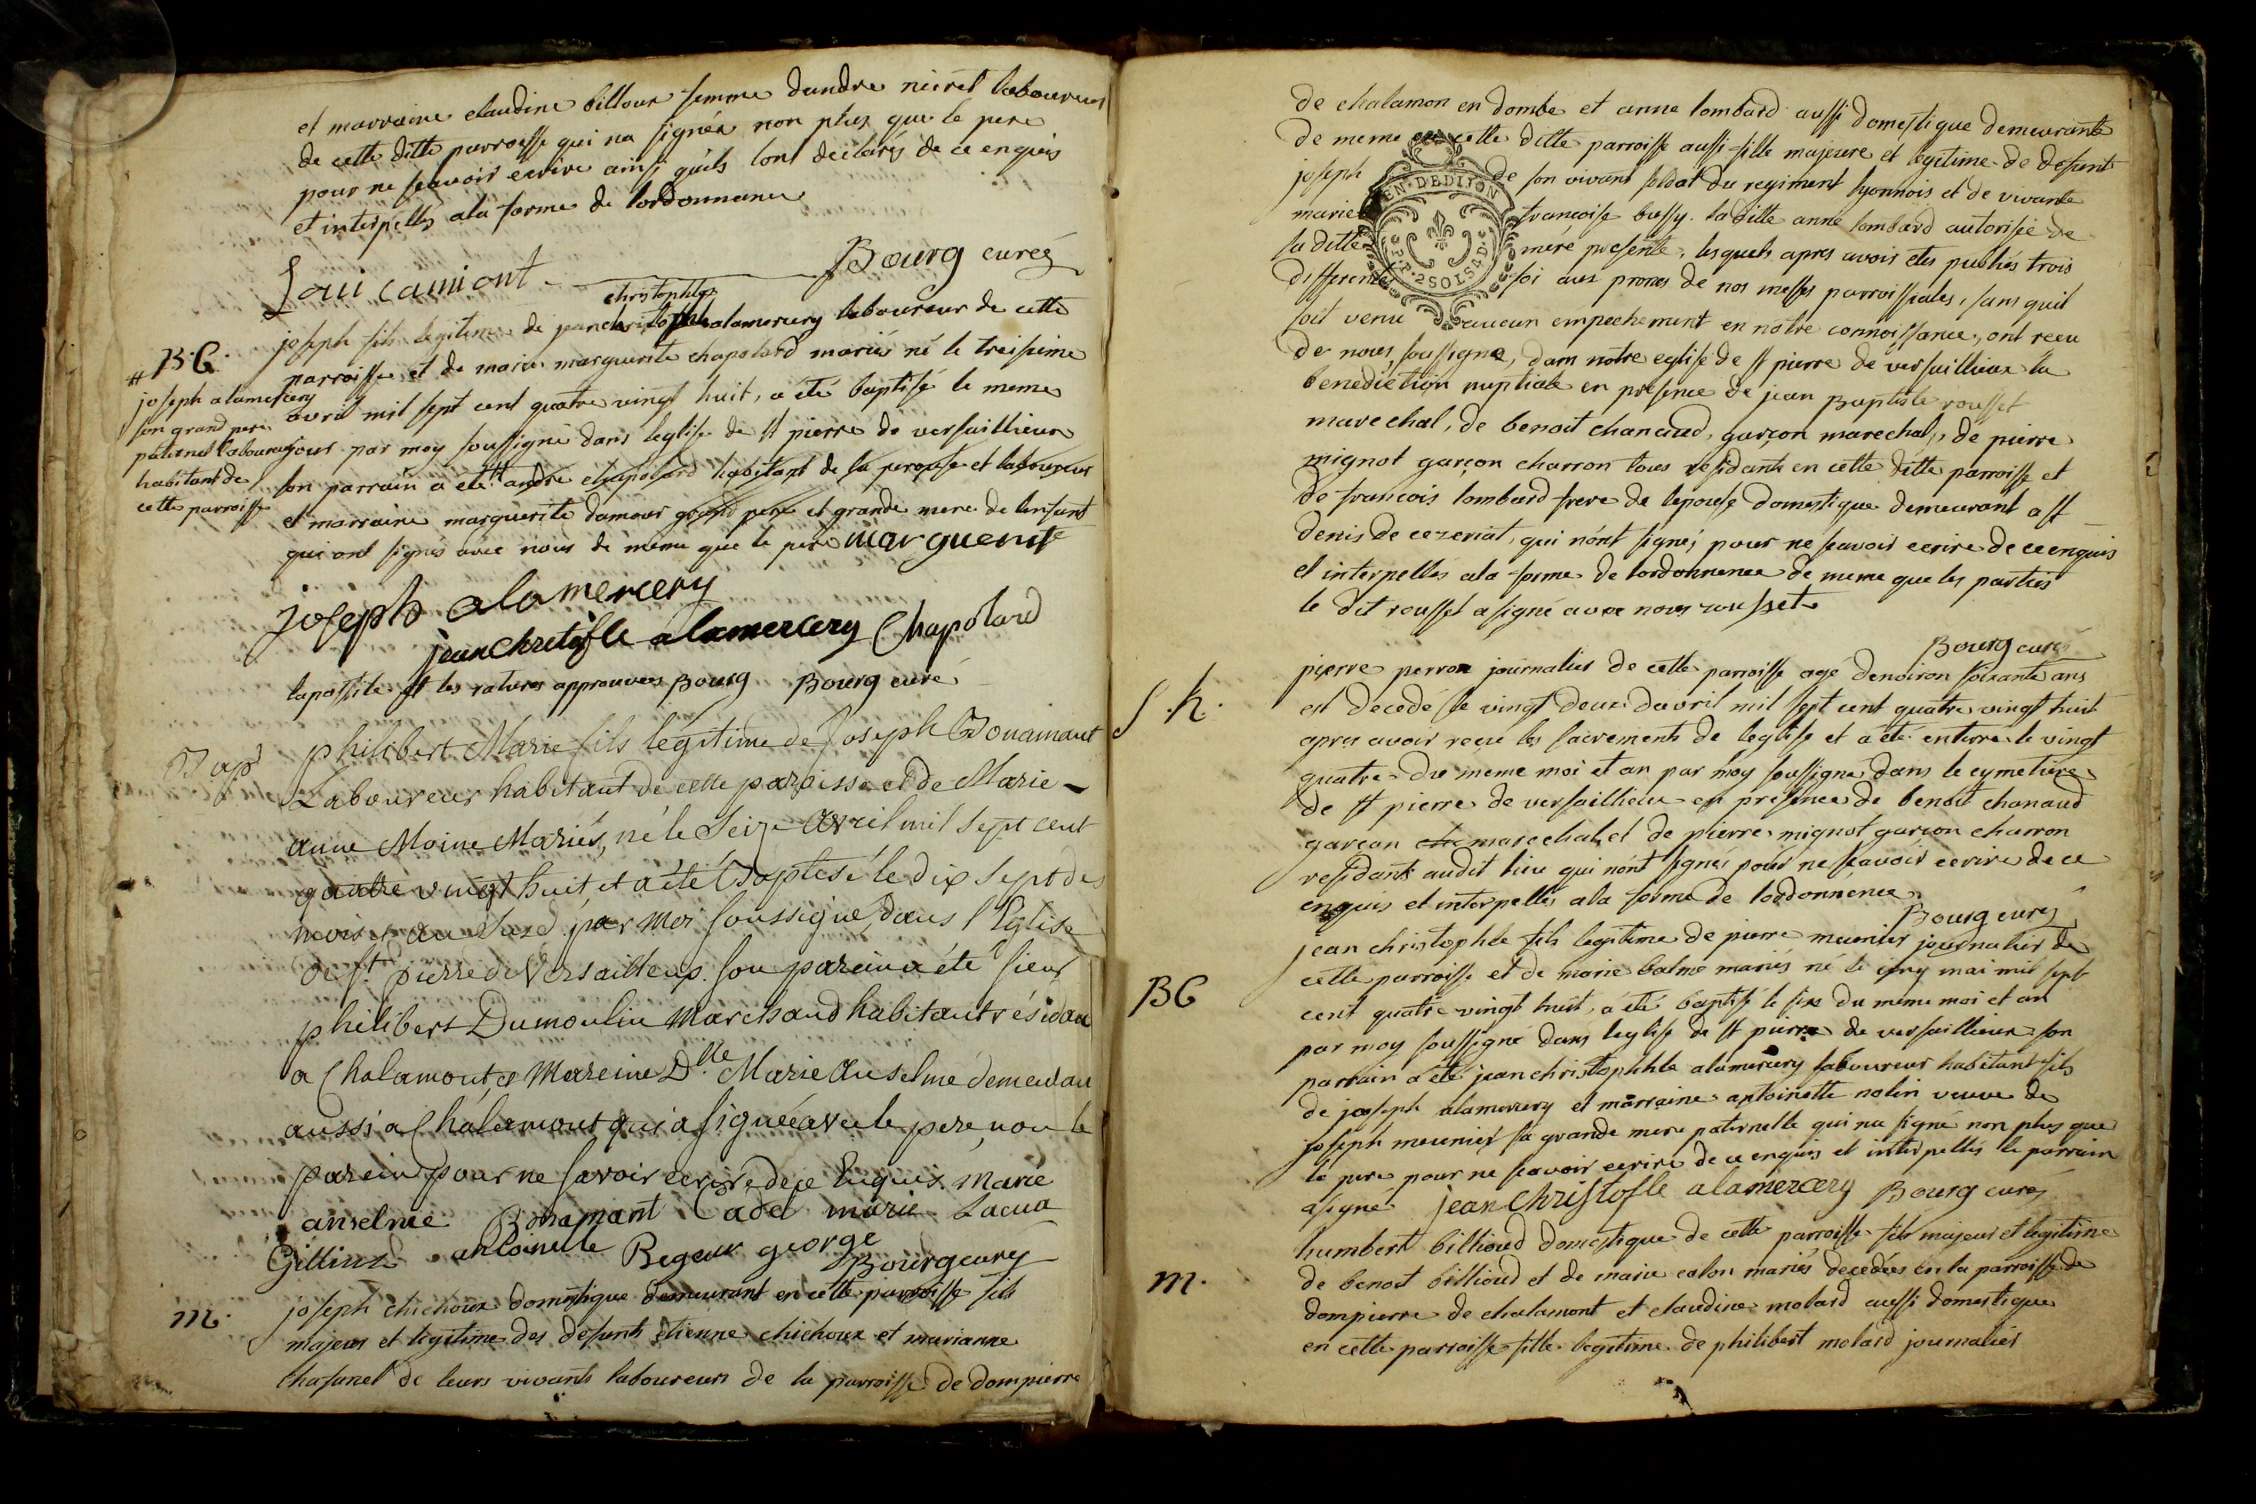 et marraine claudine billoux femme dandre neiret laboureur
de cette ditte parroisse qui na signéé non plus que le pere
pour ne scavoir ecrire ainsi quils lont declarés de ce enquis
et interpellés ala forme de lordonnance
Loui camiont Bourg curéz
christophle
joseph fils legitime de jean alamercery laboureur de cette
#B.C.
parroisse et de marie marguerite chapolard mariés né le treisieme
avril mil sept cent quatre vingt huit, a été baptisé le meme
jour par moy soussigné dans leglise de st pierre de versaillieux
son parrain a été # andre chapolard habitant de la paroisse et laboureur
et marraine marguerite damour grand pere et grande mere de lenfant
qui ont signés avec nous de meme que le pere marguerite
joseph alamercery
son grand pere
paternel laboureur
habitant de
cette parroisse
joseph alamercery
jean chritofle alamercery Chapolard
lapostile et les ratures approuvées Bourg Bourg curé
Bap
Philibert Marie fils légitime de Joseph Bonamant
Laboureur habitant de cette paroisse et de Marie-
anne Moine Mariés, né le Seize avril mil sept cent
quatre vingt huit, et a été Baptisé le dix sept des
mois et an susd. par moi soussigné, dans l'Eglise
de st. pierre de Versailleux. son parain a été sieur
philibert Dumoulin Marchand habitant résidant
a Chalamont et Mareine Dlle. Marie Anselme demeurant
aussi a Chalamont qui a signée avec le pere, non le
parein pour ne savoir ecrire de ce Enquis. Marie
anselme Bonamant Cadet marie Lacua
Gillins antoinette Begeur george
Bourg curéz
m.
joseph chichoux domestique demeurant en cette parroisse fils
majeur et legitime des defunts etienne chichoux et marianne
chafanel de leurs vivants laboureurs de la parroisse de dompierre
de chalamon en dombe et anne lombard aussi domestique demeurante
de meme en cette ditte parroisse aussi fille majeure et legitime de defunt
joseph de son vivant soldat du regiment lyonnois et de vivante
marie francoise bussy. la ditte anne lombard autorisée de
sa ditte mere presente, lesquels apres avoir etes publiés trois
differente foi aux prones de nos messes parroissiales, sans quil
soit venu aucun empechement en notre connoissance, ont recu
EN. DE DIJON
P.P. 2 SOLS 4 D.
de nous soussigné, dans notre eglise de st pierre de versaillieux la
benediction nuptiale en presence de jean Baptiste rousset
marechal, de benoit chanaud, garçon marechal, de pierre
mignot garçon charron tous residants en cette ditte parroisse et
de francois lombard frere de lepouse domestique demeurant a st
denis de cezeriat, qui nont signé, pour ne scavoir ecrire de ce enquis
et interpellés ala forme de lordonnance de meme que les parties
le dit rousset a signé avec nous rousset
Bourg curé
S.R.
pierre perron journalier de cette parroisse agé denviron soixante ans
est decedé le vingt deux davril mil sept cent quatre vingt huit
apres avoir reçu les sacrements de leglise et a été enterré le vingt
quatre du meme moi et an par moy soussigné, dans le cymetiere
de st pierre de versaillieux en presence de benoit chanaud
garçon marechal, et de pierre mignot garçon charron
residants audit lieu qui nont signés pour ne scavoir ecrire de ce
enquis et interpellés ala forme de lordonnence
Bourg curéz
BC
jean christophle fils legitime de pierre meunier journalier de
cette parroisse et de marie balme mariés né le cinq mai mil sept
cent quatre vingt huit, a été baptisé le six du meme moi et an
par moy soussigné dans leglise de st pierre de versaillieux son
parrain a été jean christophhle alamercery laboureur habitant fils
de joseph alamercery et marraine antoinette nolin veuve de
joseph meunier sa grande mere paternelle qui na signé non plus que
le pere pour ne scavoir ecrire de ce enquis et interpellés le parrain
a signé jean Christofle alamercery Bourg curéz
m.
humbert billioud domestique de cette parroisse fils majeur et legitime
de benoit billioud et de marie colon mariés decedées en la parroisse de
dompierre de chalamont et claudine molard aussi domestique
en cette parroisse fille legitime de philibert molard journalier